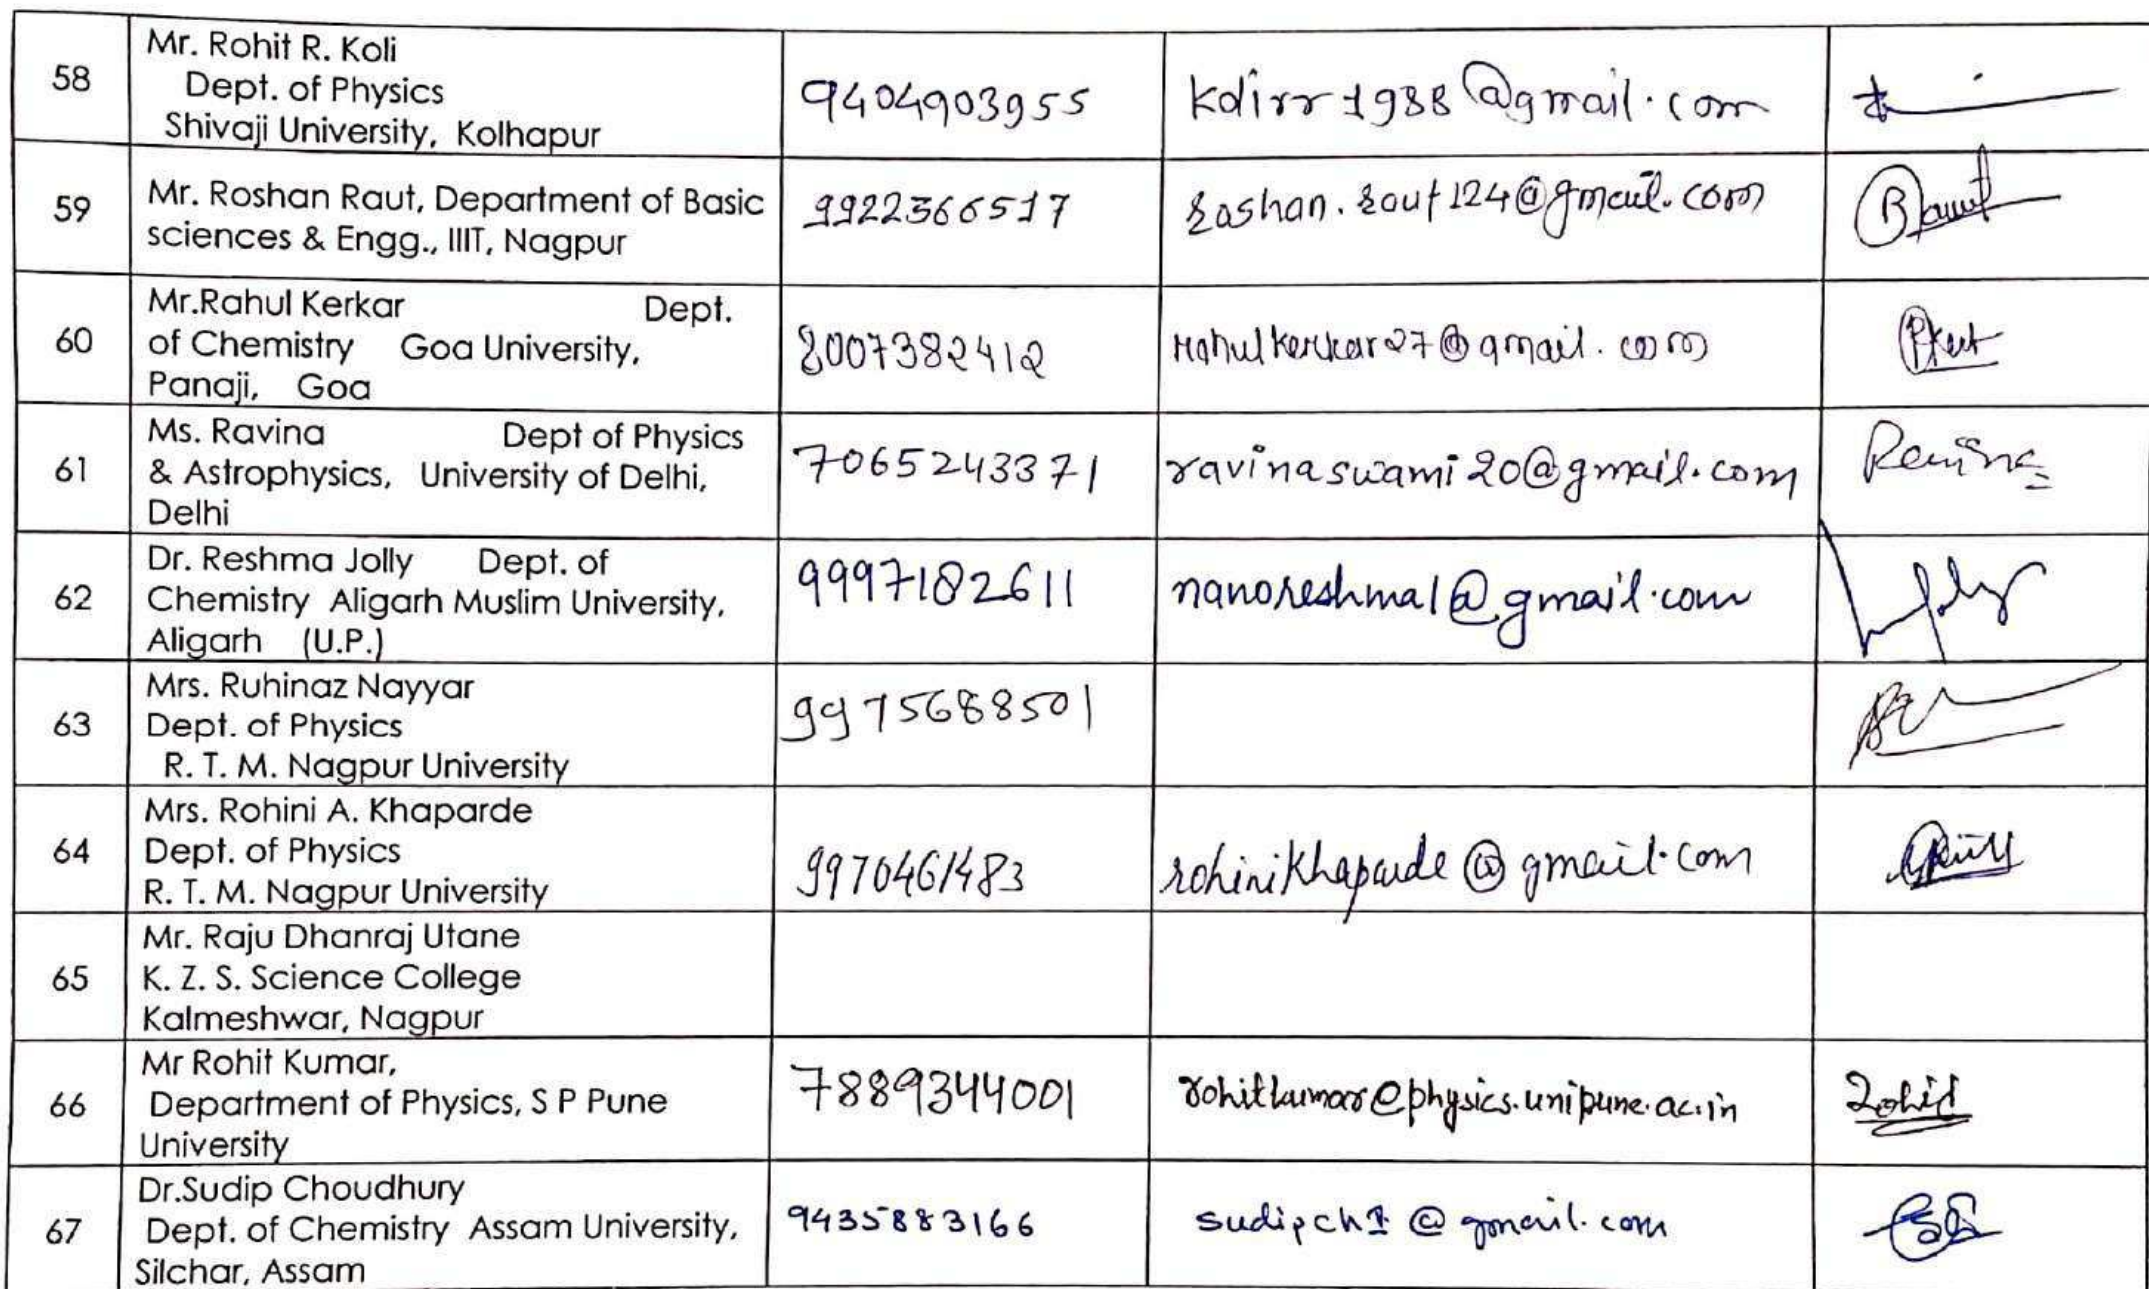 58
Mr. Rohit R. Koli
Dept. of Physics
Shivaji University, Kolhapur
9404903955
kolirr1988@gmail.com
59
Mr. Roshan Raut, Department of Basic
sciences & Engg., IIIT, Nagpur
9922366517
roshan.rout124@gmail.com
60
Mr.Rahul Kerkar Dept.
of Chemistry Goa University,
Panaji, Goa
8007382412
rahulkerkar27@gmail.com
61
Ms. Ravina Dept of Physics
& Astrophysics, University of Delhi,
Delhi
7065243371
ravinaswami20@gmail.com
Ravina
62
Dr. Reshma Jolly Dept. of
Chemistry Aligarh Muslim University,
Aligarh (U.P.)
9997182611
nanoreshma1@gmail.com
63
Mrs. Ruhinaz Nayyar
Dept. of Physics
R. T. M. Nagpur University
9975688501
64
Mrs. Rohini A. Khaparde
Dept. of Physics
R. T. M. Nagpur University
9970461483
rohinikhaparde@gmail.com
65
Mr. Raju Dhanraj Utane
K. Z. S. Science College
Kalmeshwar, Nagpur
66
Mr Rohit Kumar,
Department of Physics, S P Pune
University
7889344001
rohitkumar@physics.unipune.ac.in
Rohit
67
Dr.Sudip Choudhury
Dept. of Chemistry Assam University,
Silchar, Assam
9435883166
sudipch1@gmail.com